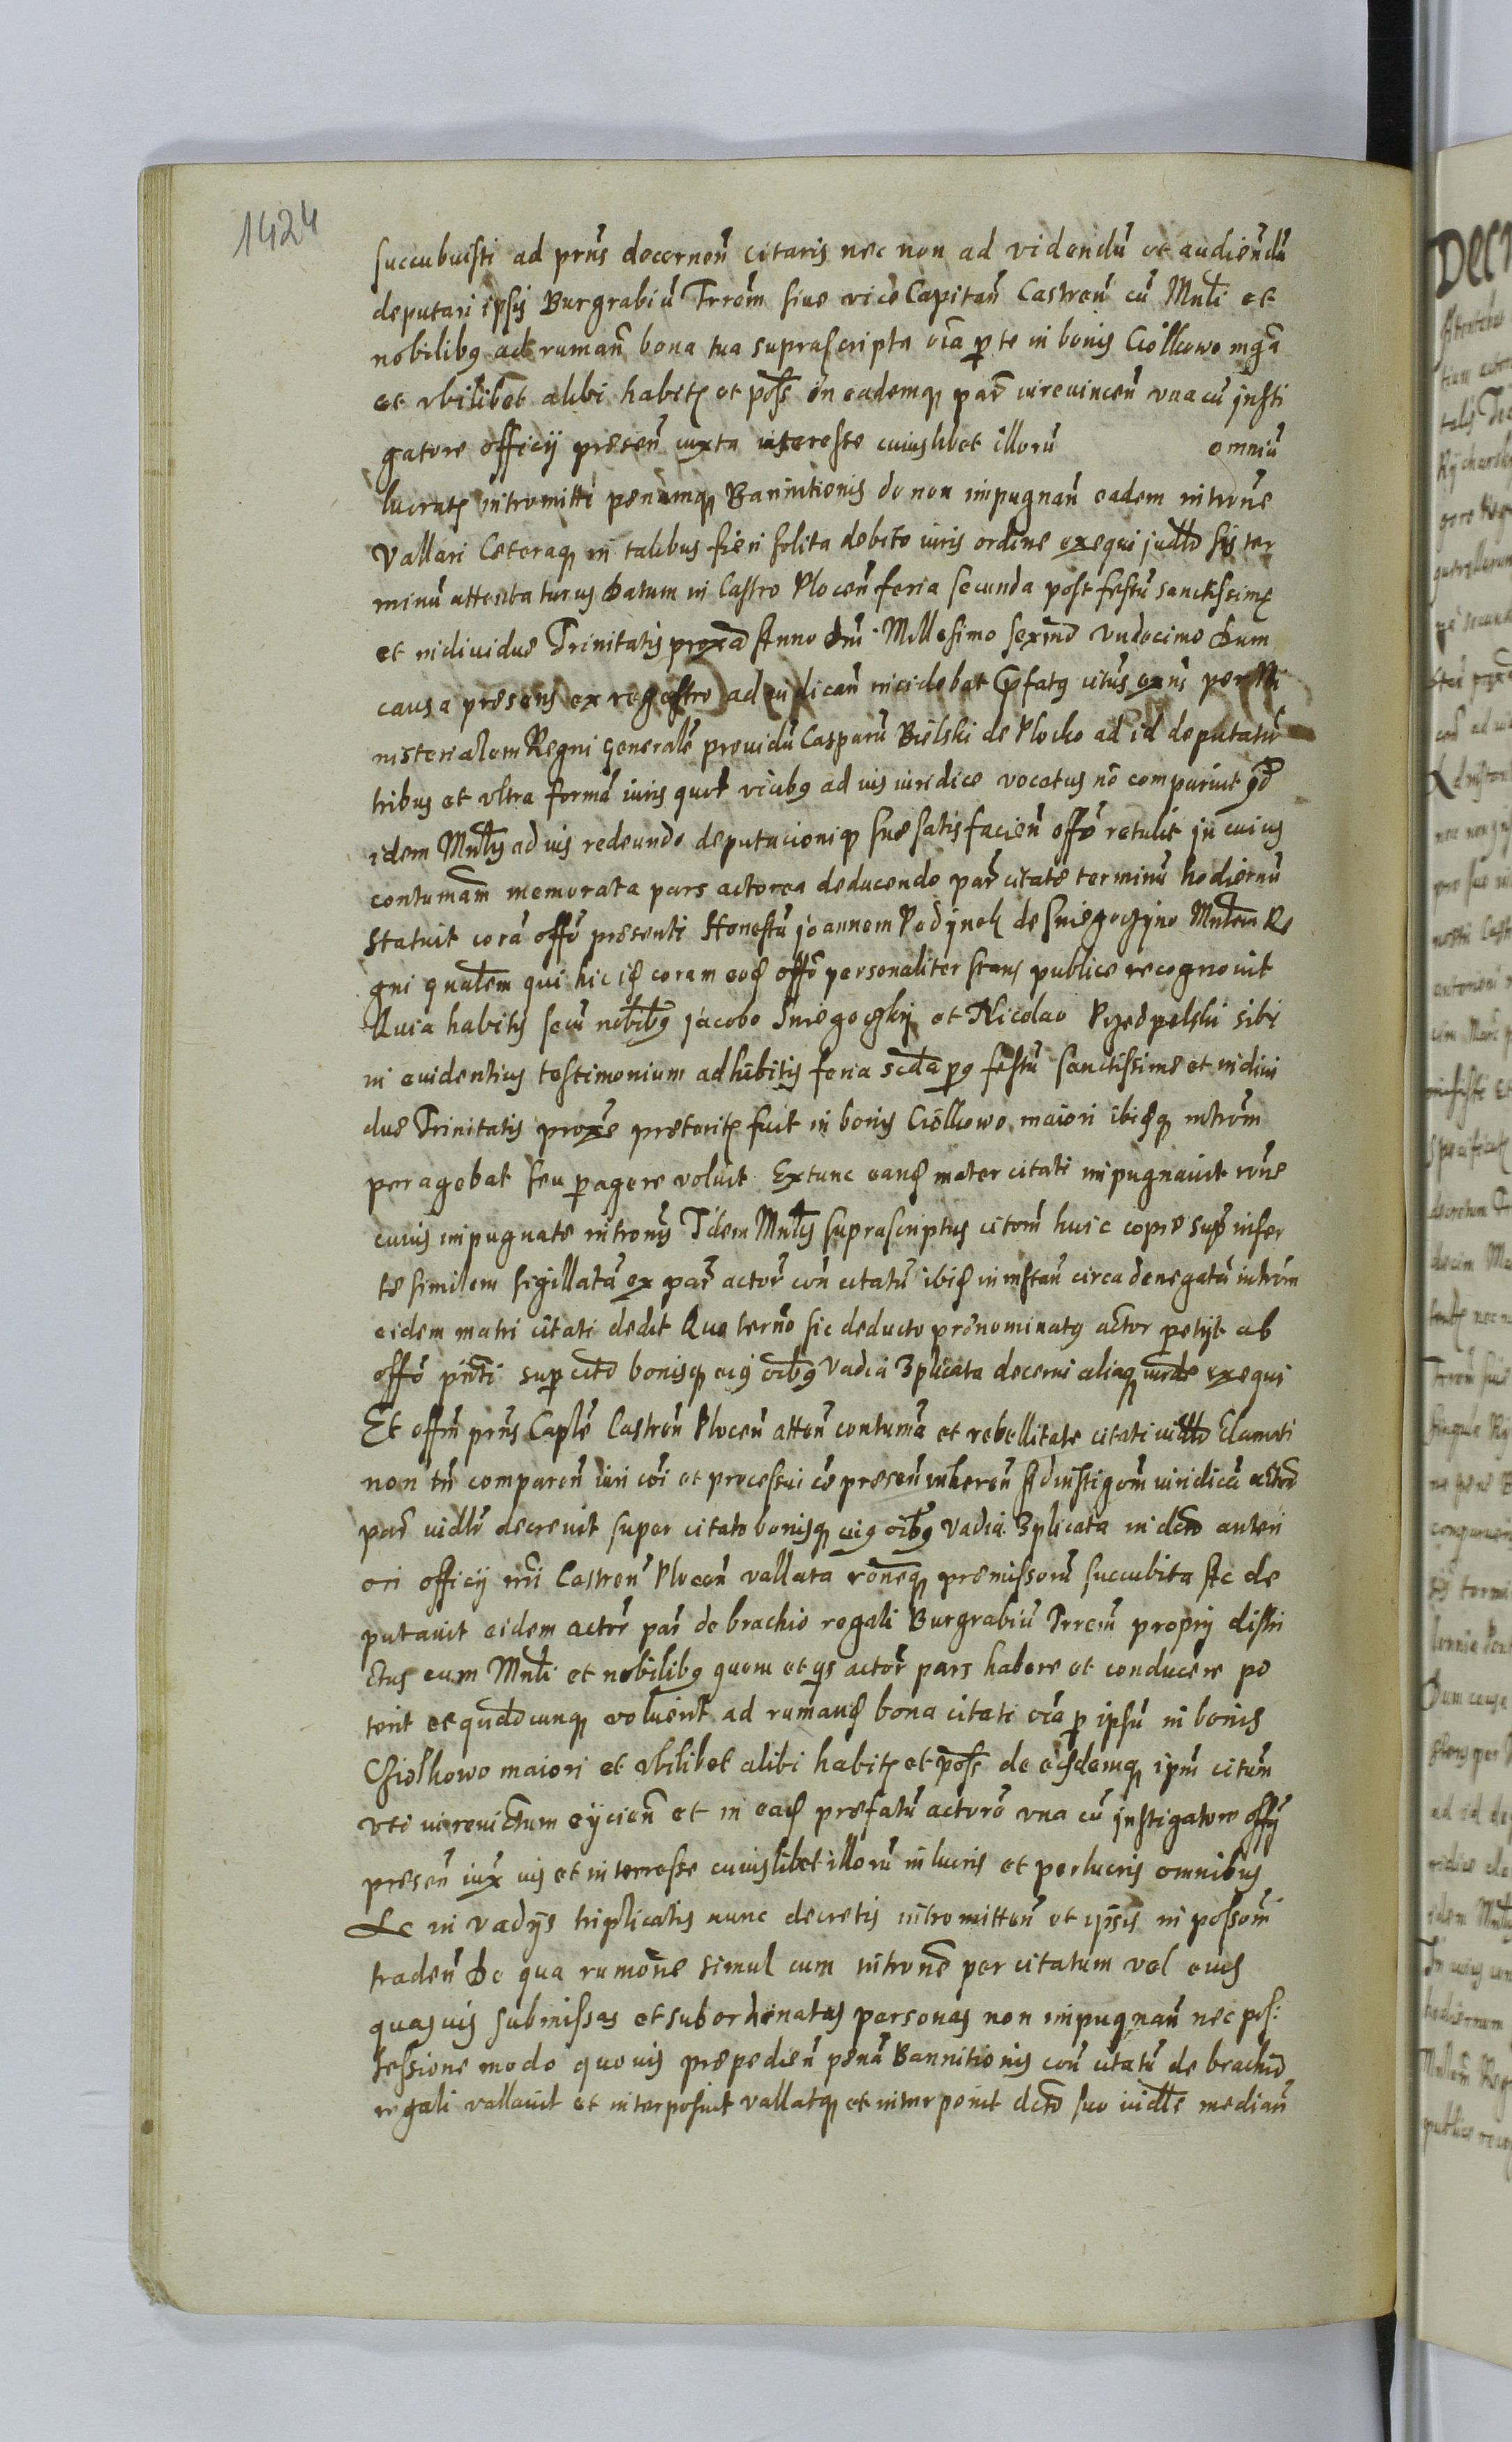 1424
succubuisti ad prns̃ decernen̄ citaris nec non ad videndū et audiendū
deputari ipsis Burgrabiū Trrem̄ siue vice Capitan̄ Castren̄ cū Mnłi et
nobilibq ad ruman̄ bona tua suprascripta oīa p te in bonis Ciołkowo mga
et vbilibet alibi habitꝫ et poss̄ in eademqꝫ par̄ iureuincen̄ vna cū insti
gatore officij presen̄ iuxta interesse cuiuslibet illorū omniū
lucratꝫ intromitti penamqꝫ Bannitionis de non impugnan̄ eadem introne
Vallari Ceteraqꝫ in talibus fieri solita debito iuris ordine exequi judłr sis ter
minū attentaturus Datum in Castro Plocen̄ feria secunda post festū sanctissimę
et indiuiduę Trinitatis proxa Anno Dnī Millesimo sexīno vndecimo Dum
causa presens ex regestro ad iudican̄ incidebat Pfatq citus exns per Mi
nisterialem Regni generalē prouidū Casparū Bielski de Plocko ad id deputatū
tribus et vltra formā iuris quot vicibq ad ius iuridice vocatus nō comparuit qd
idem Mnłis ad ius redeundo deputacioniqꝫ suę satisfacien̄ offo retulit in cuius
contumam̄ memorata pars actorea deducendo par̄ citatę terminū hodiernū
Statuit corā offo presenti Honestū joannem Podynek de Sniegoczyno Mnłem Re
gni gnałem qui hic id coram eod offo personaliter stans publice recognouit
Quia habitis secū nobilibq jacobo Sniegoczky et Nicolao Przedpelski sibi
in euidentius testimonium adhibitis feria scda pq festū sanctissimę et indiui
duę Trinitatis proxę preteritꝫ fuit in bonis Ciołkowo maiori ibidqꝫ introm̄
peragebat seu pagere voluit Extunc eand mater citati impugnauit rone
cuius impugnatę intronis Idem Mnłis suprascriptus citom̄ huic copię sup̄ inser
tę similem sigillatā ex par̄ actor̄ con̄ citatū ibid in instan̄ circa denegatū introm̄
eidem matri citati dedit Quo termo sic deducto prenominatq actor petijt ab
offo pn̄ti sup citō bonisqꝫ eiq oibq Vadia 3plicata decerni aliaqꝫ iurde exequi
Et offm̄ prns Caplē Castren̄ Plocen̄ atten̄ contumā et rebellitate citati iudłr clamati
non tn̄ comparen̄ iuri coī et processui cę presen̄ inheren̄ Ad instigom̄ iuridicā actor̄
par̄ iudłr decreuit super citato bonisqꝫ eiq oibq Vadia 3plicata in dcto anteri
ori officij mī Castren̄ Plocen̄ vallata roneqꝫ premissorū succubita Ac de
putauit eidem actor̄ par̄ de brachio regali Burgrabiū Trrem̄ proprij distri
ctus cum Mnłi et nobilibq quem et qs actor̄ pars habere et conducere po
terit et quadocunqꝫ voluerit ad rumand bona citati oīa p ipsū in bonis
Cziołkowo maiori et vbilibet alibi habitꝫ et poss̄ de eisdemqꝫ ipm̄ citum
vti iureuictum eijcien̄ et in ead prefatū actorē vna cū instigatore offij
presen̄ iux̄ ius et interresse cuiuslibet illorū in lucris et perlucris omnibus
Ac in vadijs triplicatis nunc decretis intromitten̄ et ipsis in possom̄
traden̄ De qua rumone simul cum introne per citatum vel eius
quasuis submissas et subordinatas personas non impugnan̄ nec pos:
sessione modo quouis prepedien̄ penā Bannitionis con̄ citatū de brachio
regali vallauit et interposuit vallatqꝫ et interponit dcto suo iudłe median̄